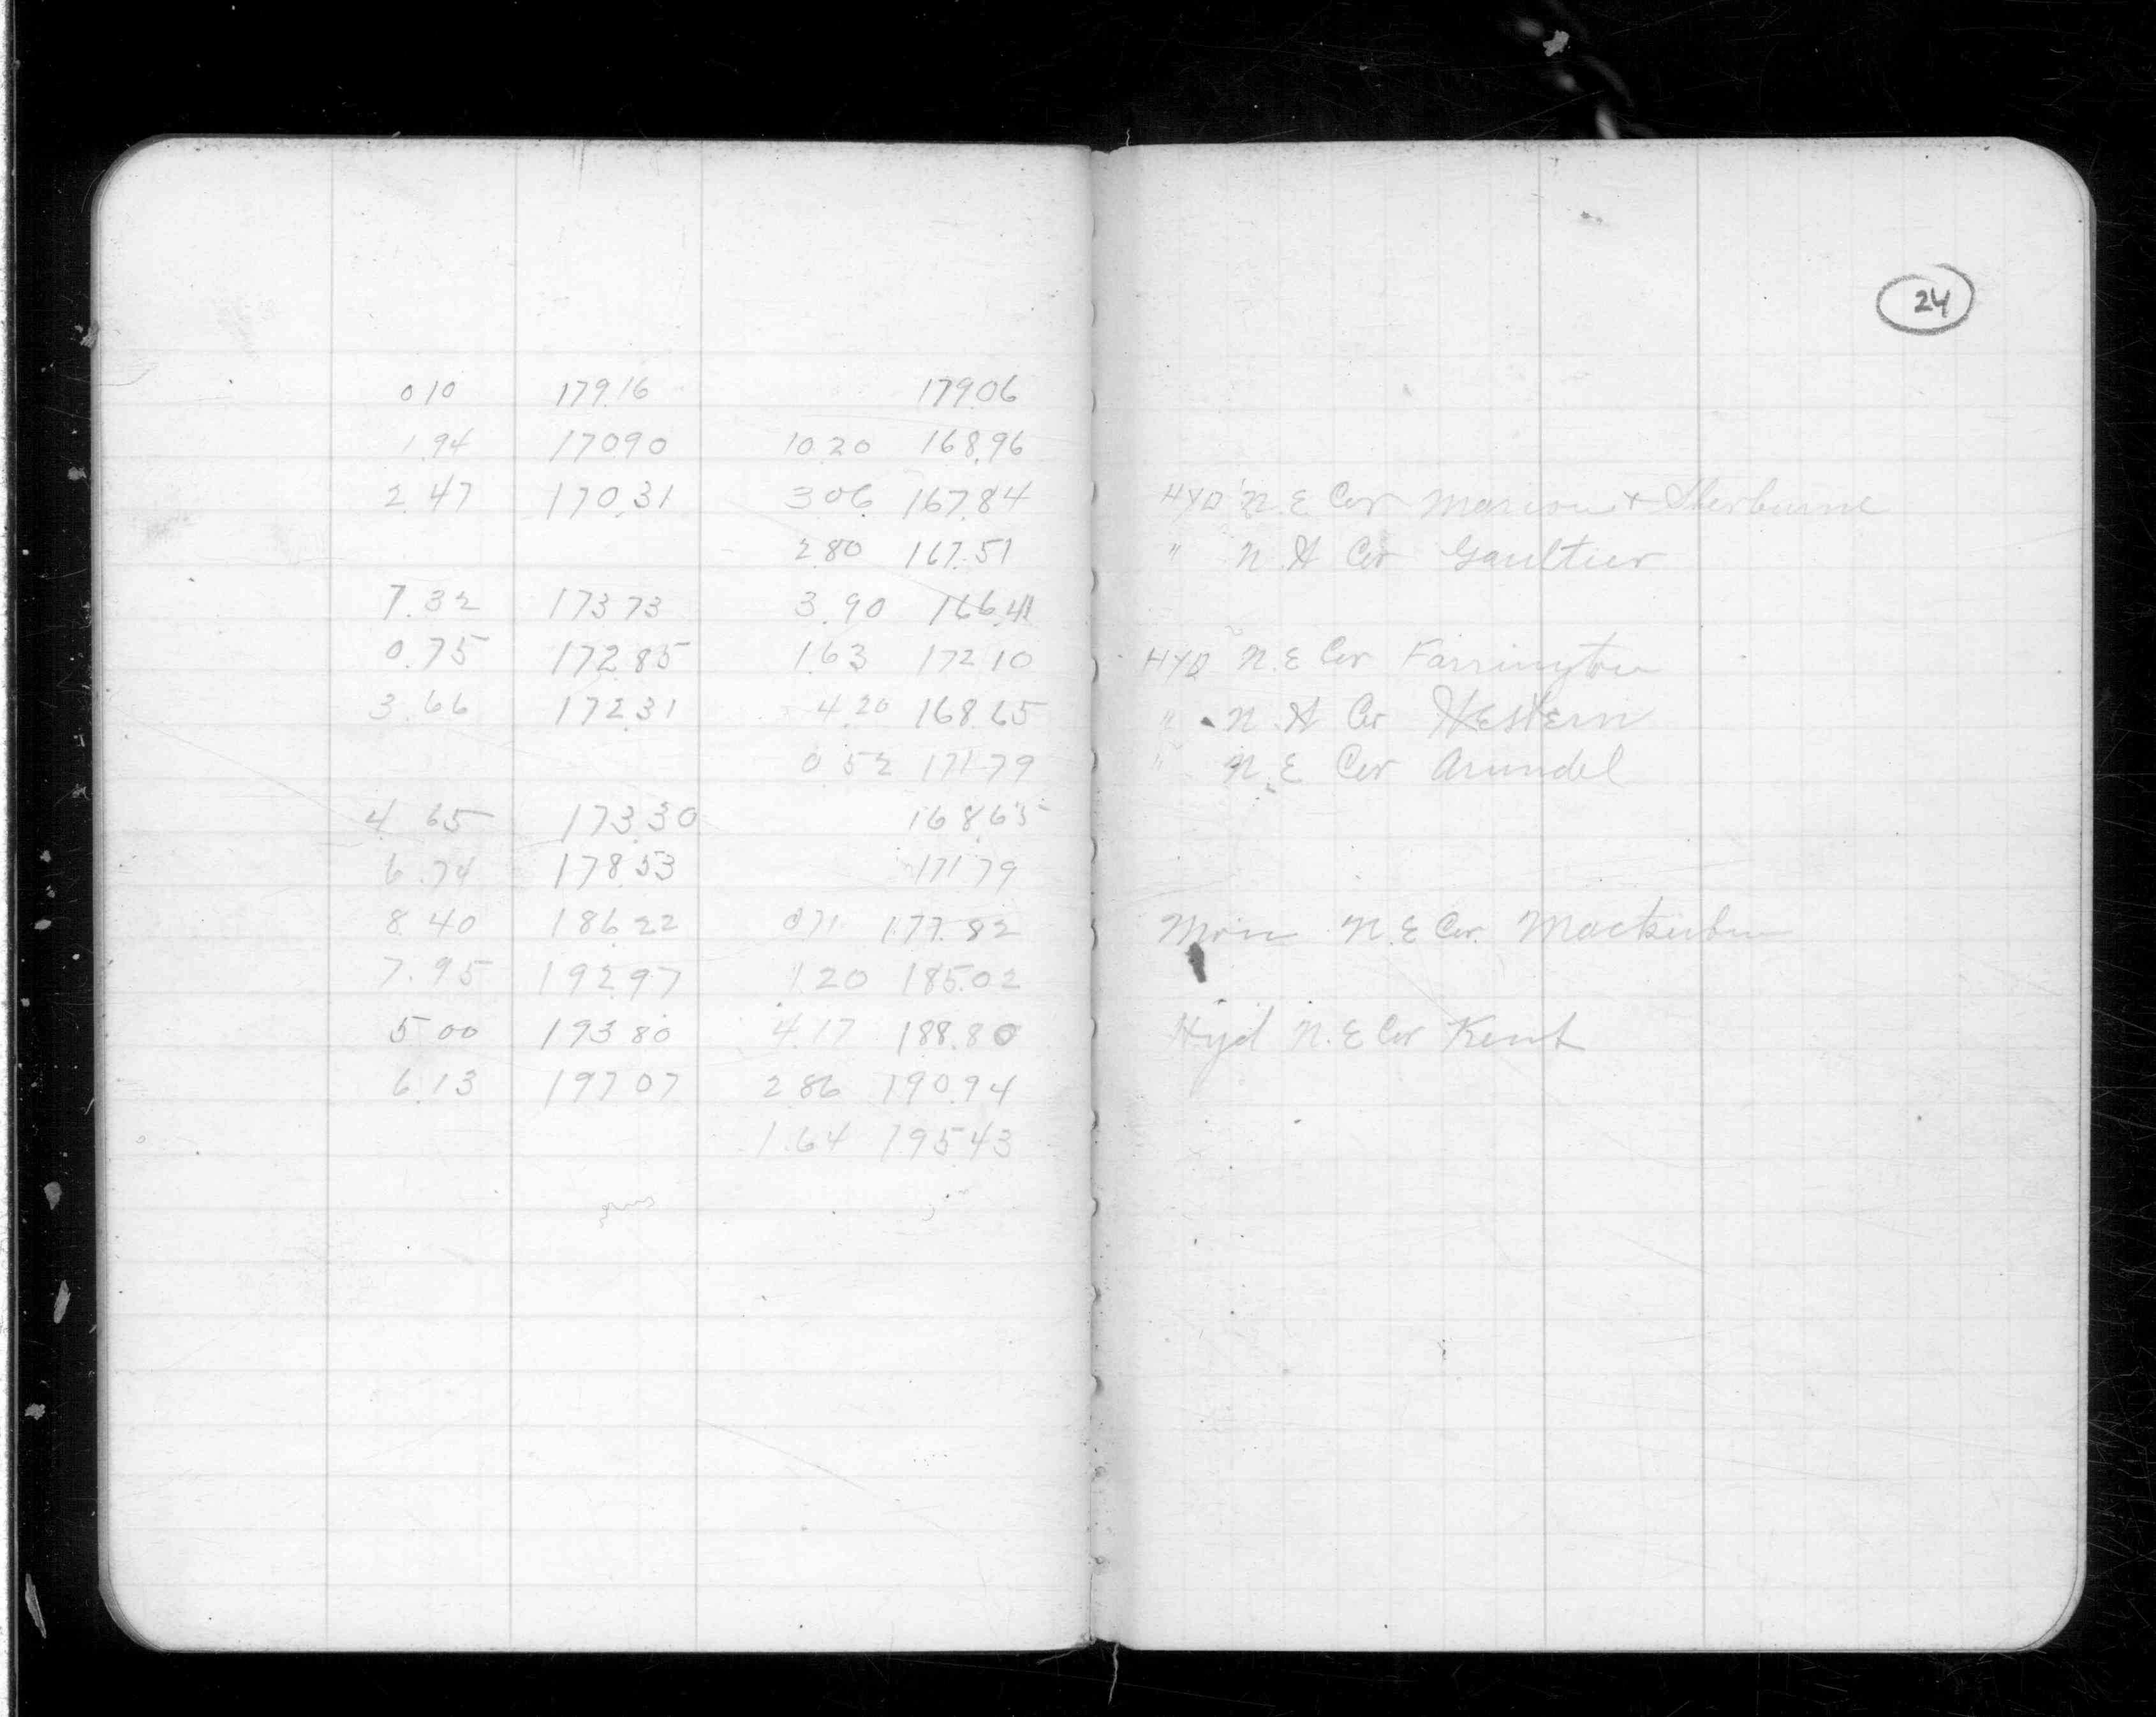 24
0 10 179.16 179.06
1.94 170 90 10.20 168.96
2.47 170.31 3.06 167.84 HYD N. E Cor Marion + Sherburne
2.80 167.51 " N. W Cor Gaultier
7.32 173 73 3.90 166.41
0.75 172.85 1.63 172 10 HYD N. E Cor Farrington
3.66 172.31 4.20 168.65 " N. W Cor Western
0 52 171 79 " N. E Cor Arundel
4 65 173.30 168.65
6.74 178.53 171 79
8.40 186.22 0 71 177.82 Mon N. E Cor. Mackubin
7.95 192.97 1.20 185.02
5 00 193 80 4.17 188.80 Hyd N. E Cor Kent
6.13 197 07 2 86 190.94
1.64 195 43